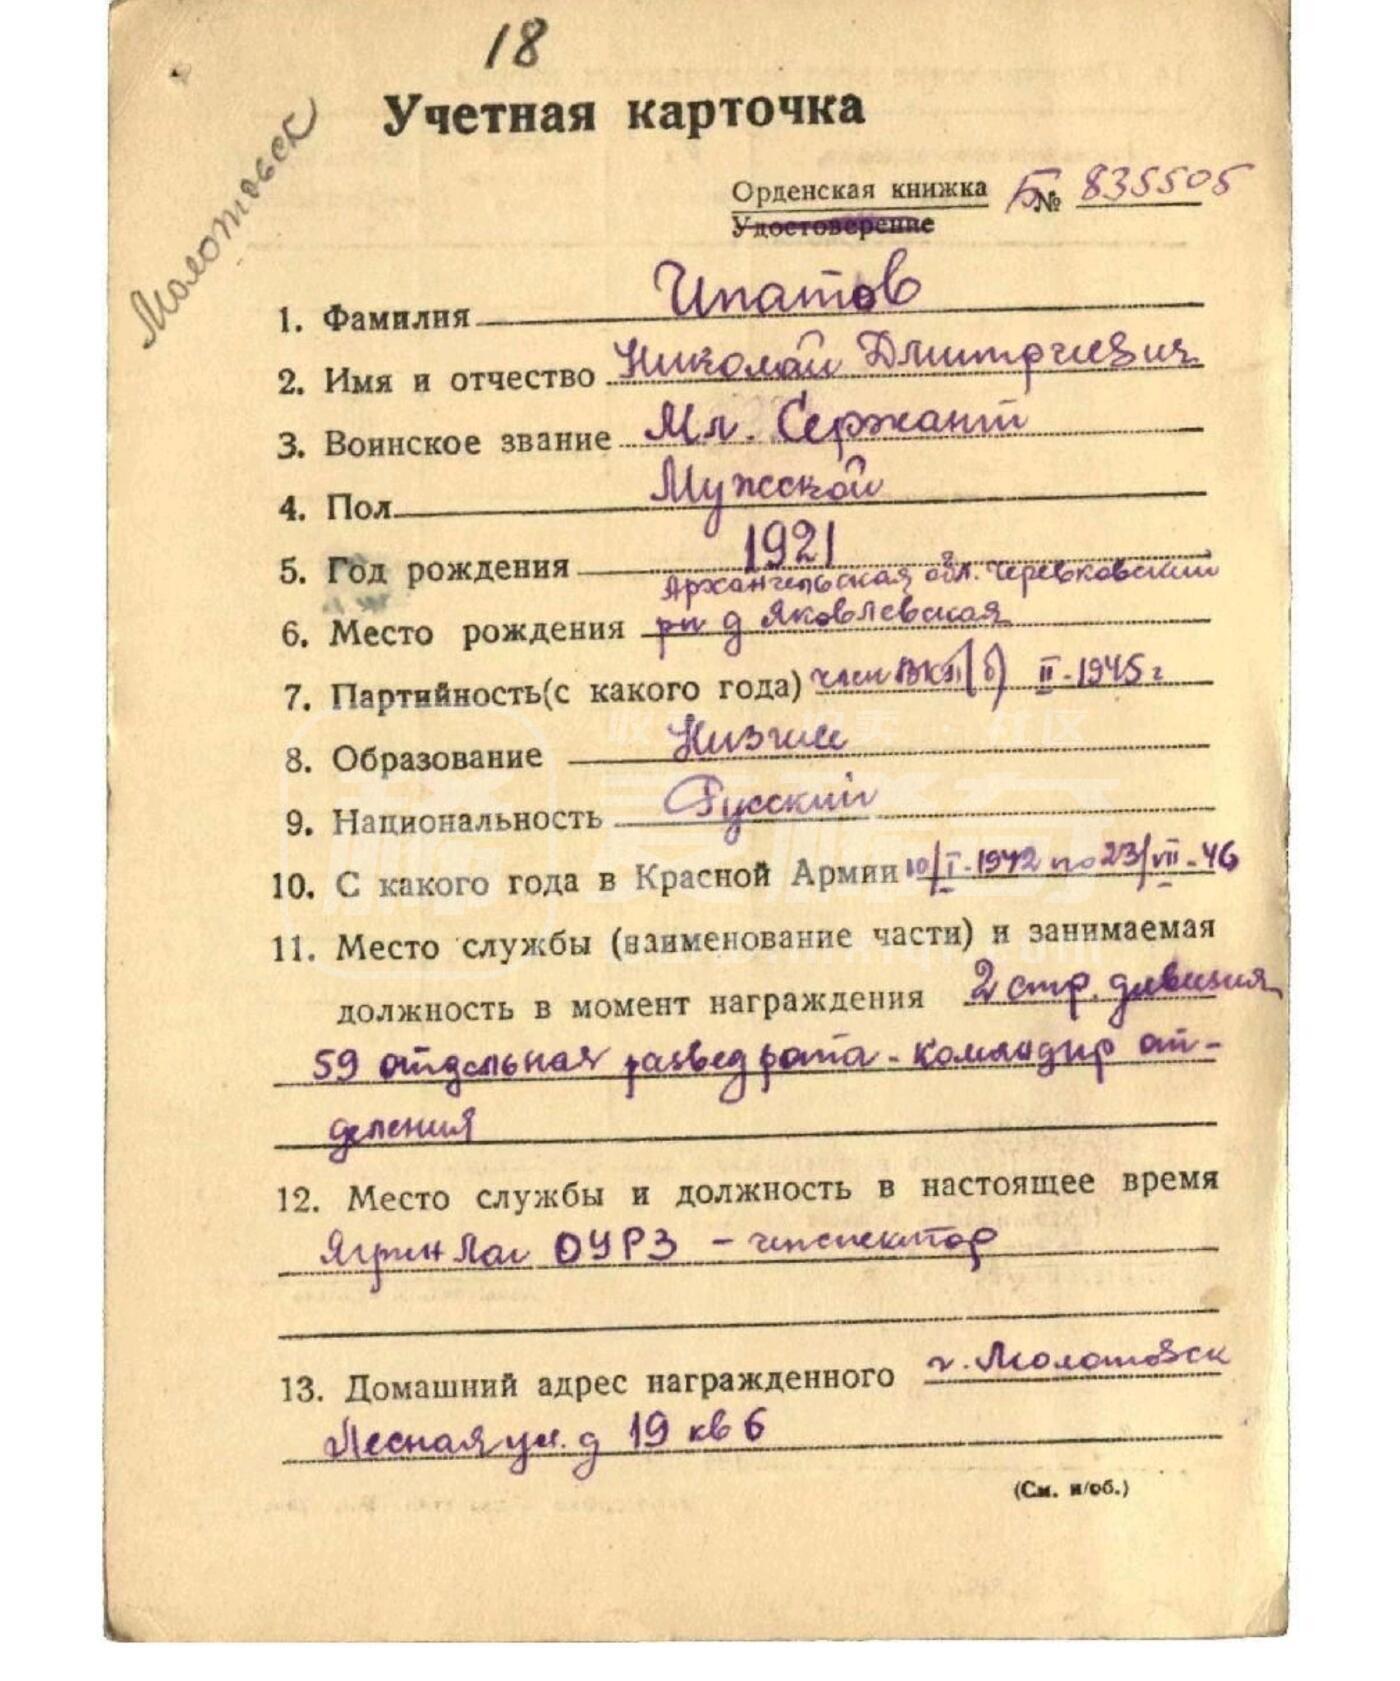 18
Молотовск
Учетная карточка
Орденская книжка Б № 835505
Удостоверение
1. Фамилия Ипатов
2. Имя и отчество Николай Дмитриевич
3. Воинское звание Мл. Сержант
4. Пол Мужской
5. Год рождения 1921
Архангельская обл. Черевковский
6. Место рождения рн д Яковлевская
7. Партийность(с какого года) член ВКП(б) II-1945 г
8. Образование Низшее
9. Национальность Русский
10. С какого года в Красной Армии 10/I-1942 по 23/VII-46
11. Место службы (наименование части) и занимаемая
должность в момент награждения 2 стр. дивизия
59 отдельная разведрота - командир от-
деления
12. Место службы и должность в настоящее время
Ягринлаг ОУРЗ - инспектор
13. Домашний адрес награжденного г. Молотовск
Лесная ул. д 19 кв 6
(См. н/об.)